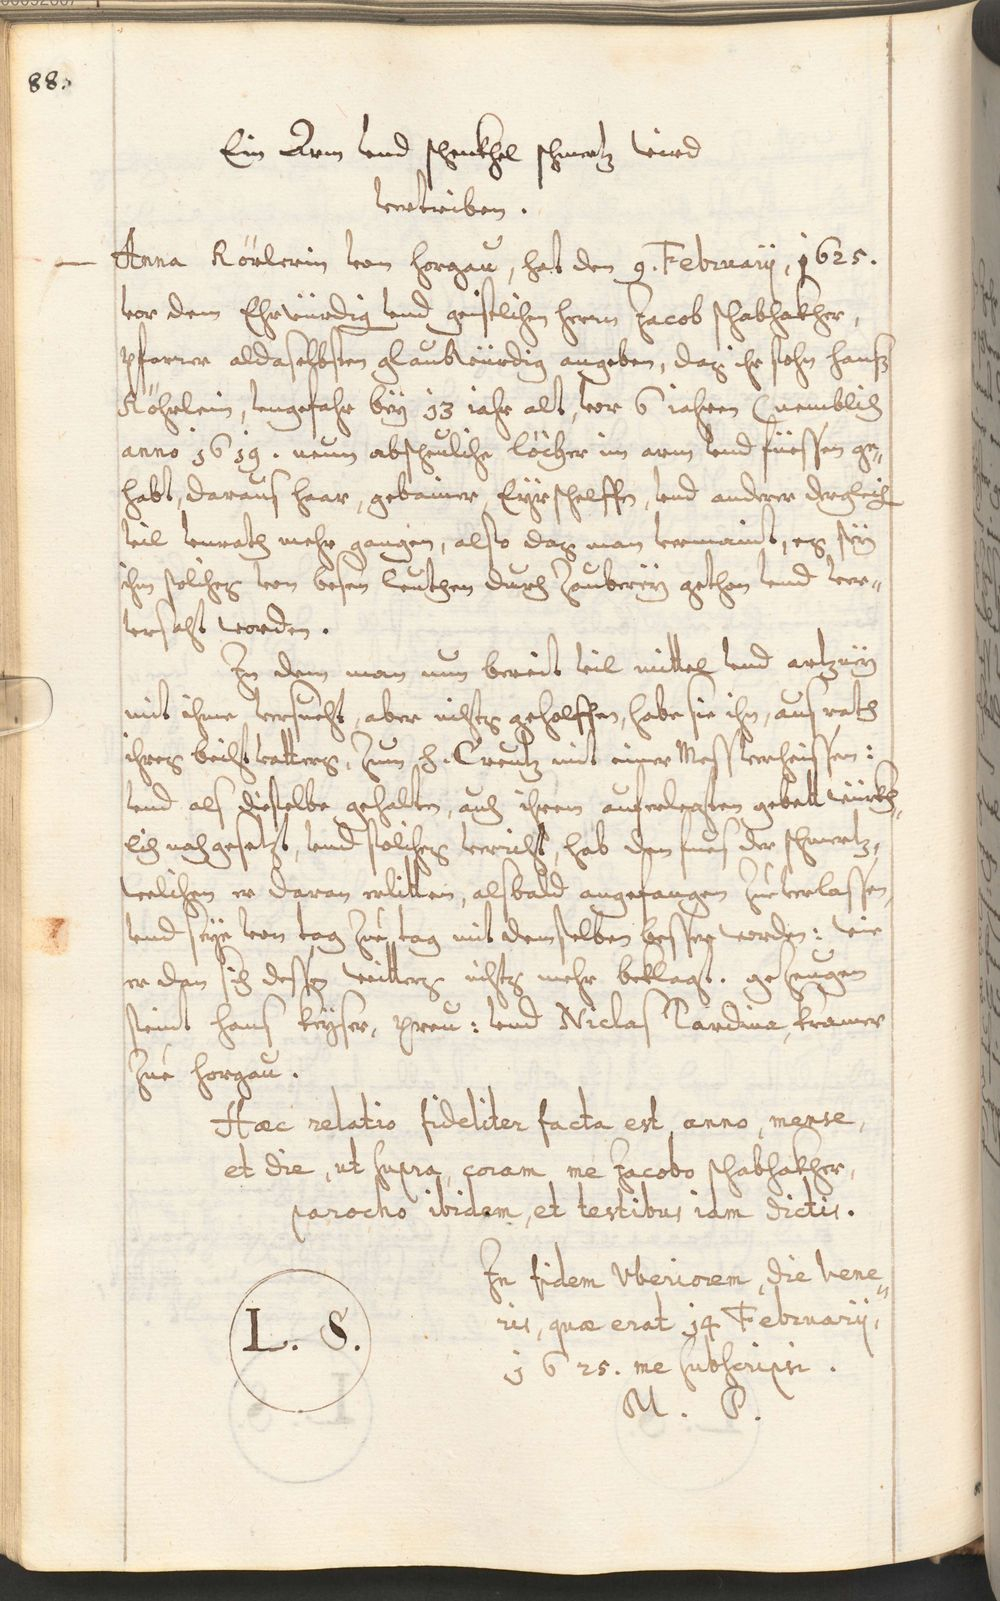 88.
Ein Arm vnd schenkhel schmertz wird
vertriben.
Anna Körlerin von Horgau, hat den 9. Februarij, 1625.
vor dem Ehrwürdig vnd geistlichen herrn Jacob schabhakher,
pfarrer aldaselbsten glaubwürdig angeben, daz ihr sohn hanß
Köhrlein, vngefahr bey 13 iahr alt, vor 6 iahren (nemblich
anno 1619. neun abscheuliche löcher im arm vnd füessen ge„
habt, daraus haar, gebainer, Eyrschelffen, vnd anderer dergleich
vil vnrath mehr gangen, also daz man vermaint, es sey
ihm solches von besen leuthen durch Zauberey gethon vnd ver„
versacht worden.
In dem man nun bereit vil mittel vnd artzney
mit ihme versucht, aber nichts geholffen, habe sie ihn, aus rath
ihres beichtvatters, zum h. Creutz mit einer Mess verheissen:
vnd als dieselbe gehalten, auch ihrem auferlegten gebett würkh„
lich nachgesetzt, vnd solches verricht, hab den fues der schmertz,
welchen er daran erlitten, alsbald angefangen zue verlassen,
vnd seye von tag zue tag mit demselben besser worden: wie
er dan sich dessen weitters nichts mehr beklagt. gezeugen
seint hans keyser, preu: vnd Niclas Tardina, kramer
zue Horgau.
Hæc relatio fideliter facta est anno, mense,
et die, ut supra, coram me Jacobo schabhakher,
parocho ibidem, et testibus iam dictis.
In fidem vberiorem, die vene„
ris, quæ erat 14 Februarij,
1625. me subscripsi.
L. S.
M. P.